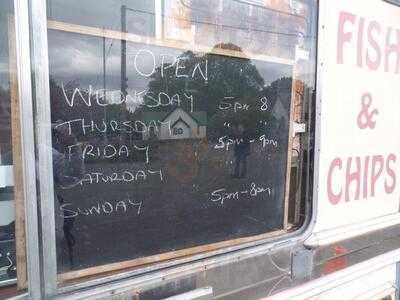 OPEN
WEDNESDAY 5pm 8
THURSDAY " "
FRIDAY 5pm - 9pm
SATURDAY "
SUNDAY 5pm - 8pm
FISH
&
CHIPS